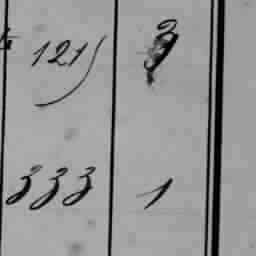 121) 3
333 1